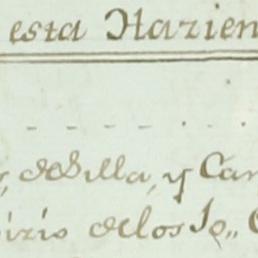 esta Hazien
, de Silla, y Car
izio de los S,,